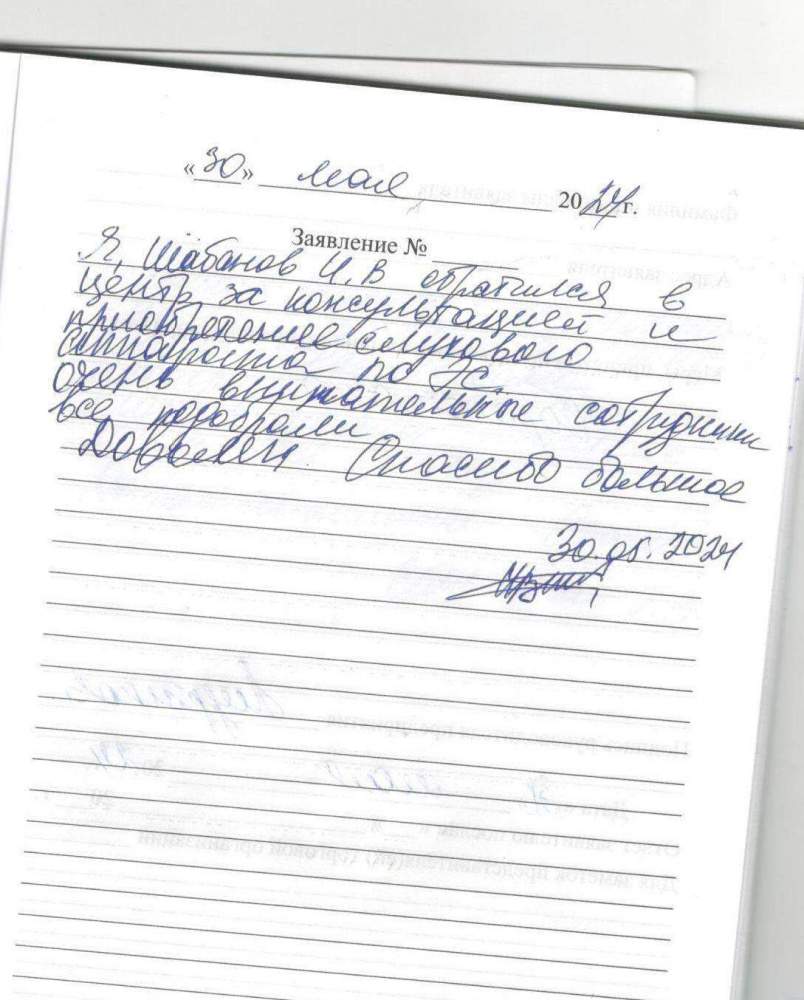 «30» мая 2024г.
Заявление №
Я, Шабанов И.В обратился в
центр за консультацией и
приобретение слухового
аппарата по ЭС.
очень внимательные сотрудники
все подобрали
Доволен. Спасибо большое
30.05.2024